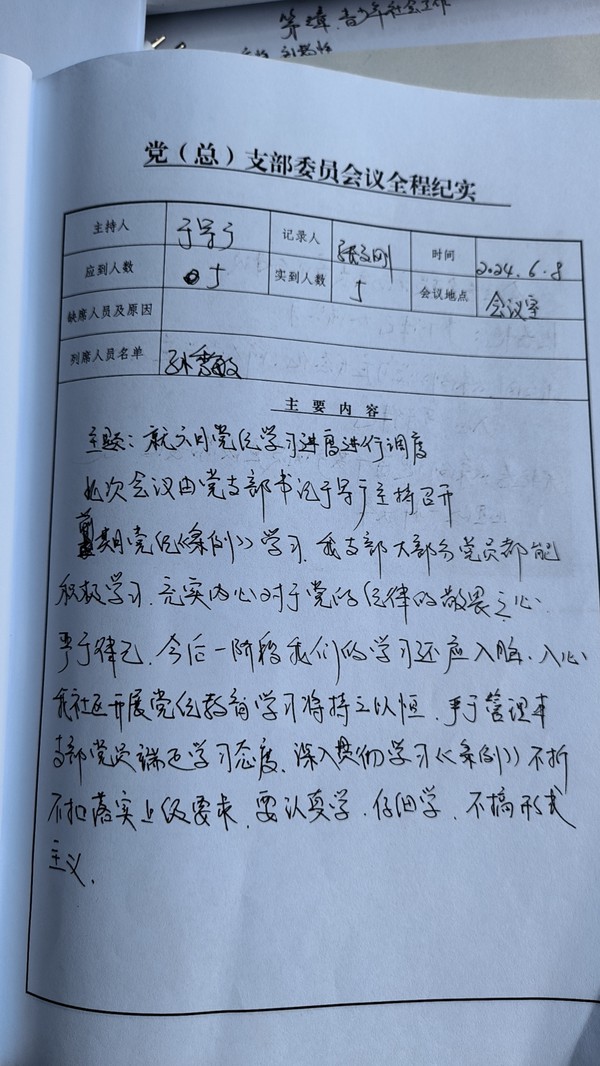 第2章 青少年社会工作
党（总）支部委员会议全程纪实
主持人 于学广 记录人 时间 2024.6.8
应到人数 5 实到人数 5 会议地点 会议室
缺席人员及原因
列席人员名单 孙雪敏
主要内容
主题：就六月党纪学习进度进行调度
此次会议由党支部书记于学广主持召开
前期党纪《条例》学习，我支部大部分党员都能
积极学习，充实内心对于党的纪律的敬畏之心，
严于律己，今后一阶段我们的学习还应入脑、入心
我社区开展党纪教育学习将持之以恒，严于管理本
支部党员端正学习态度、深入贯彻学习《条例》不折
不扣落实上级要求，要认真学，仔细学，不搞形式
主义。